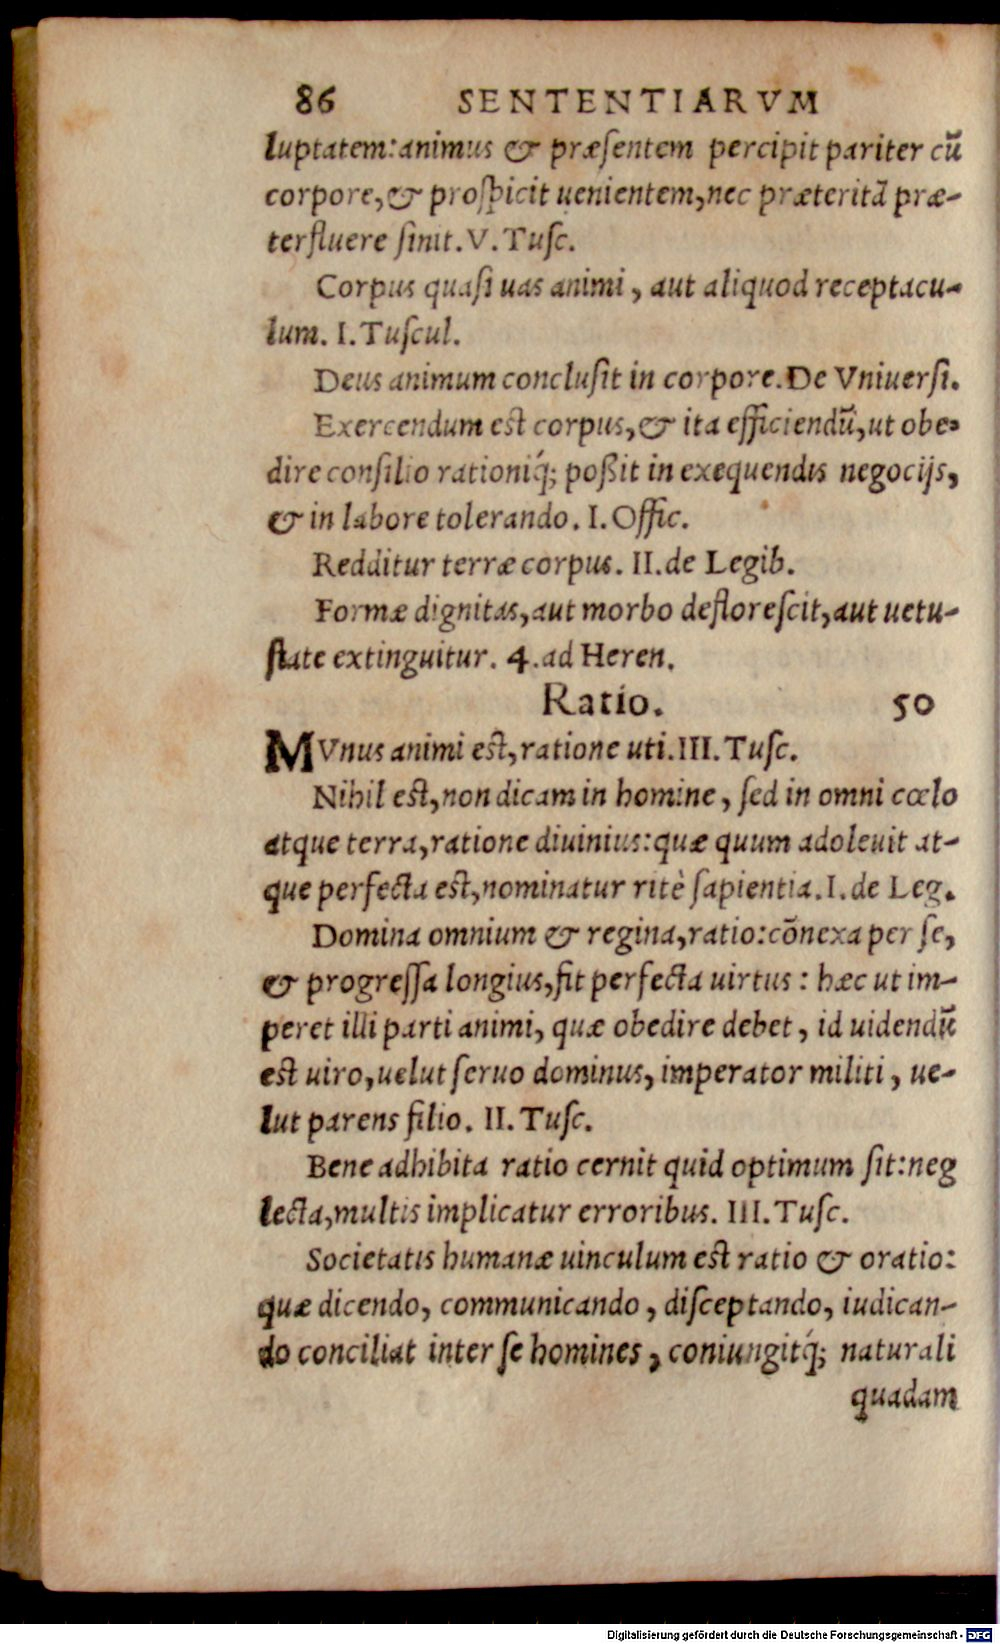 86 SENTENTIARVM
luptatem: animus & præſentem percipit pariter cū
corpore, & proſpicit uenientem, nec præteritā præ-
terfluere ſinit. V. Tuſc.
Corpus quaſi uas animi, aut aliquod receptacu-
lum. I. Tuſcul.
Deus animum concluſit in corpore. De Vniuerſi.
Exercendum est corpus, & ita efficiendū, ut obe-
dire conſilio rationiq́; poßit in exequendis negocijs,
& in labore tolerando. I. Offic.
Redditur terræ corpus. II. de Legib.
Formæ dignitas, aut morbo defloreſcit, aut uetu-
ſtate extinguitur. 4. ad Heren.
Ratio. 50
MVnus animi est, ratione uti. III. Tuſc.
Nihil est, non dicam in homine, ſed in omni cœlo
atque terra, ratione diuinius: quæ quum adoleuit at-
que perfecta est, nominatur ritè ſapientia. I. de Leg.
Domina omnium & regina, ratio: cōnexa per ſe,
& progreſſa longius, fit perfecta uirtus: hæc ut im-
peret illi parti animi, quæ obedire debet, id uidendū
est uiro, uelut ſeruo dominus, imperator militi, ue-
lut parens filio. II. Tuſc.
Bene adhibita ratio cernit quid optimum ſit: neg
lecta, multis implicatur erroribus. III. Tuſc.
Societatis humanæ uinculum est ratio & oratio:
quæ dicendo, communicando, diſceptando, iudican-
do conciliat inter ſe homines, coniungitq́; naturali
quadam
Digitalisierung gefördert durch die Deutsche Forschungsgemeinschaft - DFG